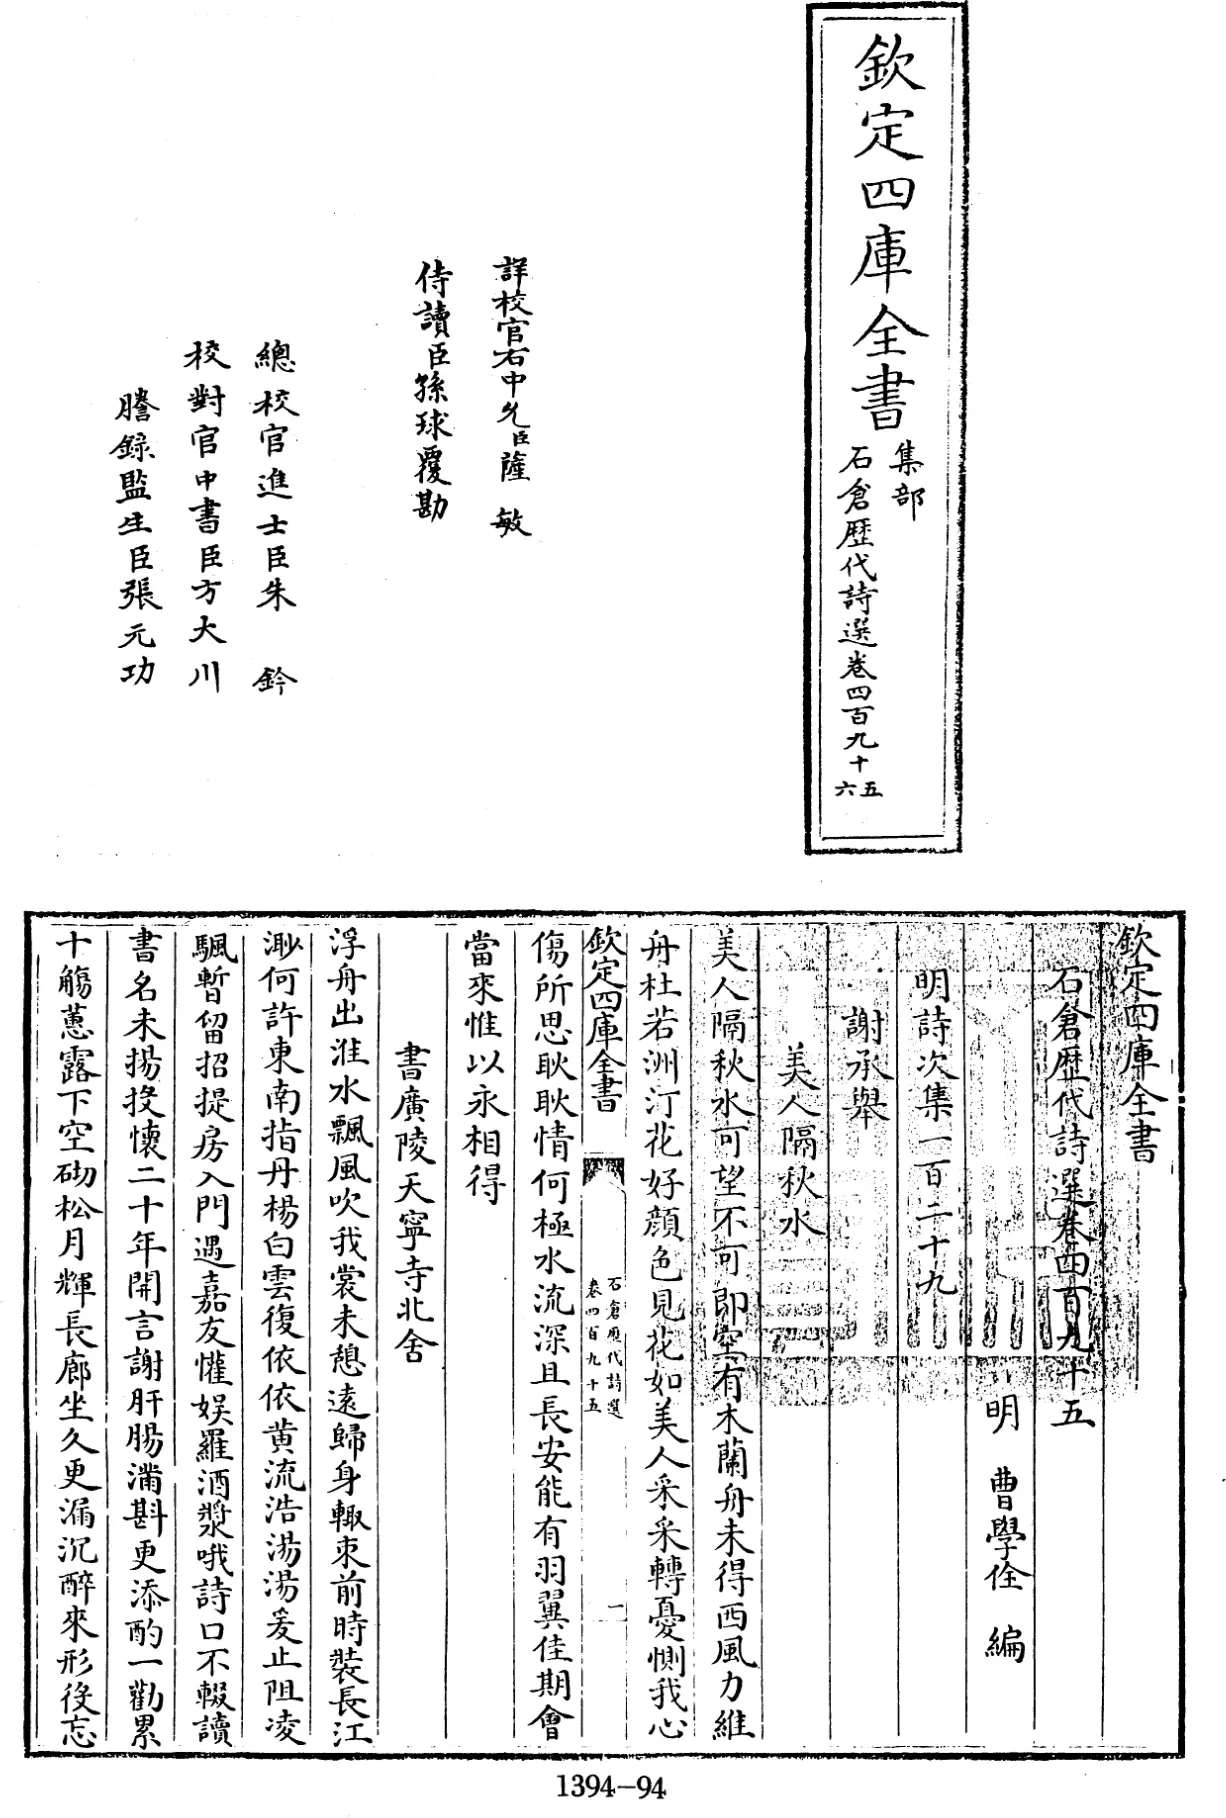 欽定四庫全書
集部
石倉歷代詩選卷四百九十五
六
詳校官右中允臣薩敏
侍讀臣孫球覆勘
總校官進士臣朱鈐
校對官中書臣方大川
謄錄監生臣張元功
欽定四庫全書
石倉歷代詩選卷四百九十五
明 曹學佺 編
明詩次集一百二十九
謝承舉
美人隔秋水
美人隔秋水可望不可即空有木蘭舟未得西風力維
舟杜若洲汀花好顔色見花如美人采采轉憂惻我心
欽定四庫全書
石倉歷代詩選
卷四百九十五
一
傷所思耿耿情何極水流深且長安能有羽翼佳期會
當來惟以永相得
書廣陵天寧寺北舍
浮舟出淮水飄風吹我裳未憩遠歸身輙束前時裝長江
渺何許東南指丹楊白雲復依依黄流浩湯湯爰止阻凌
颿暫留招提房入門遇嘉友懽娱羅酒漿哦詩口不輟讀
書名未揚投懷二十年開言謝肝腸滿斟更添酌一勸累
十觴蕙露下空砌松月輝長廊坐久更漏沉醉來形役忘
1394-94